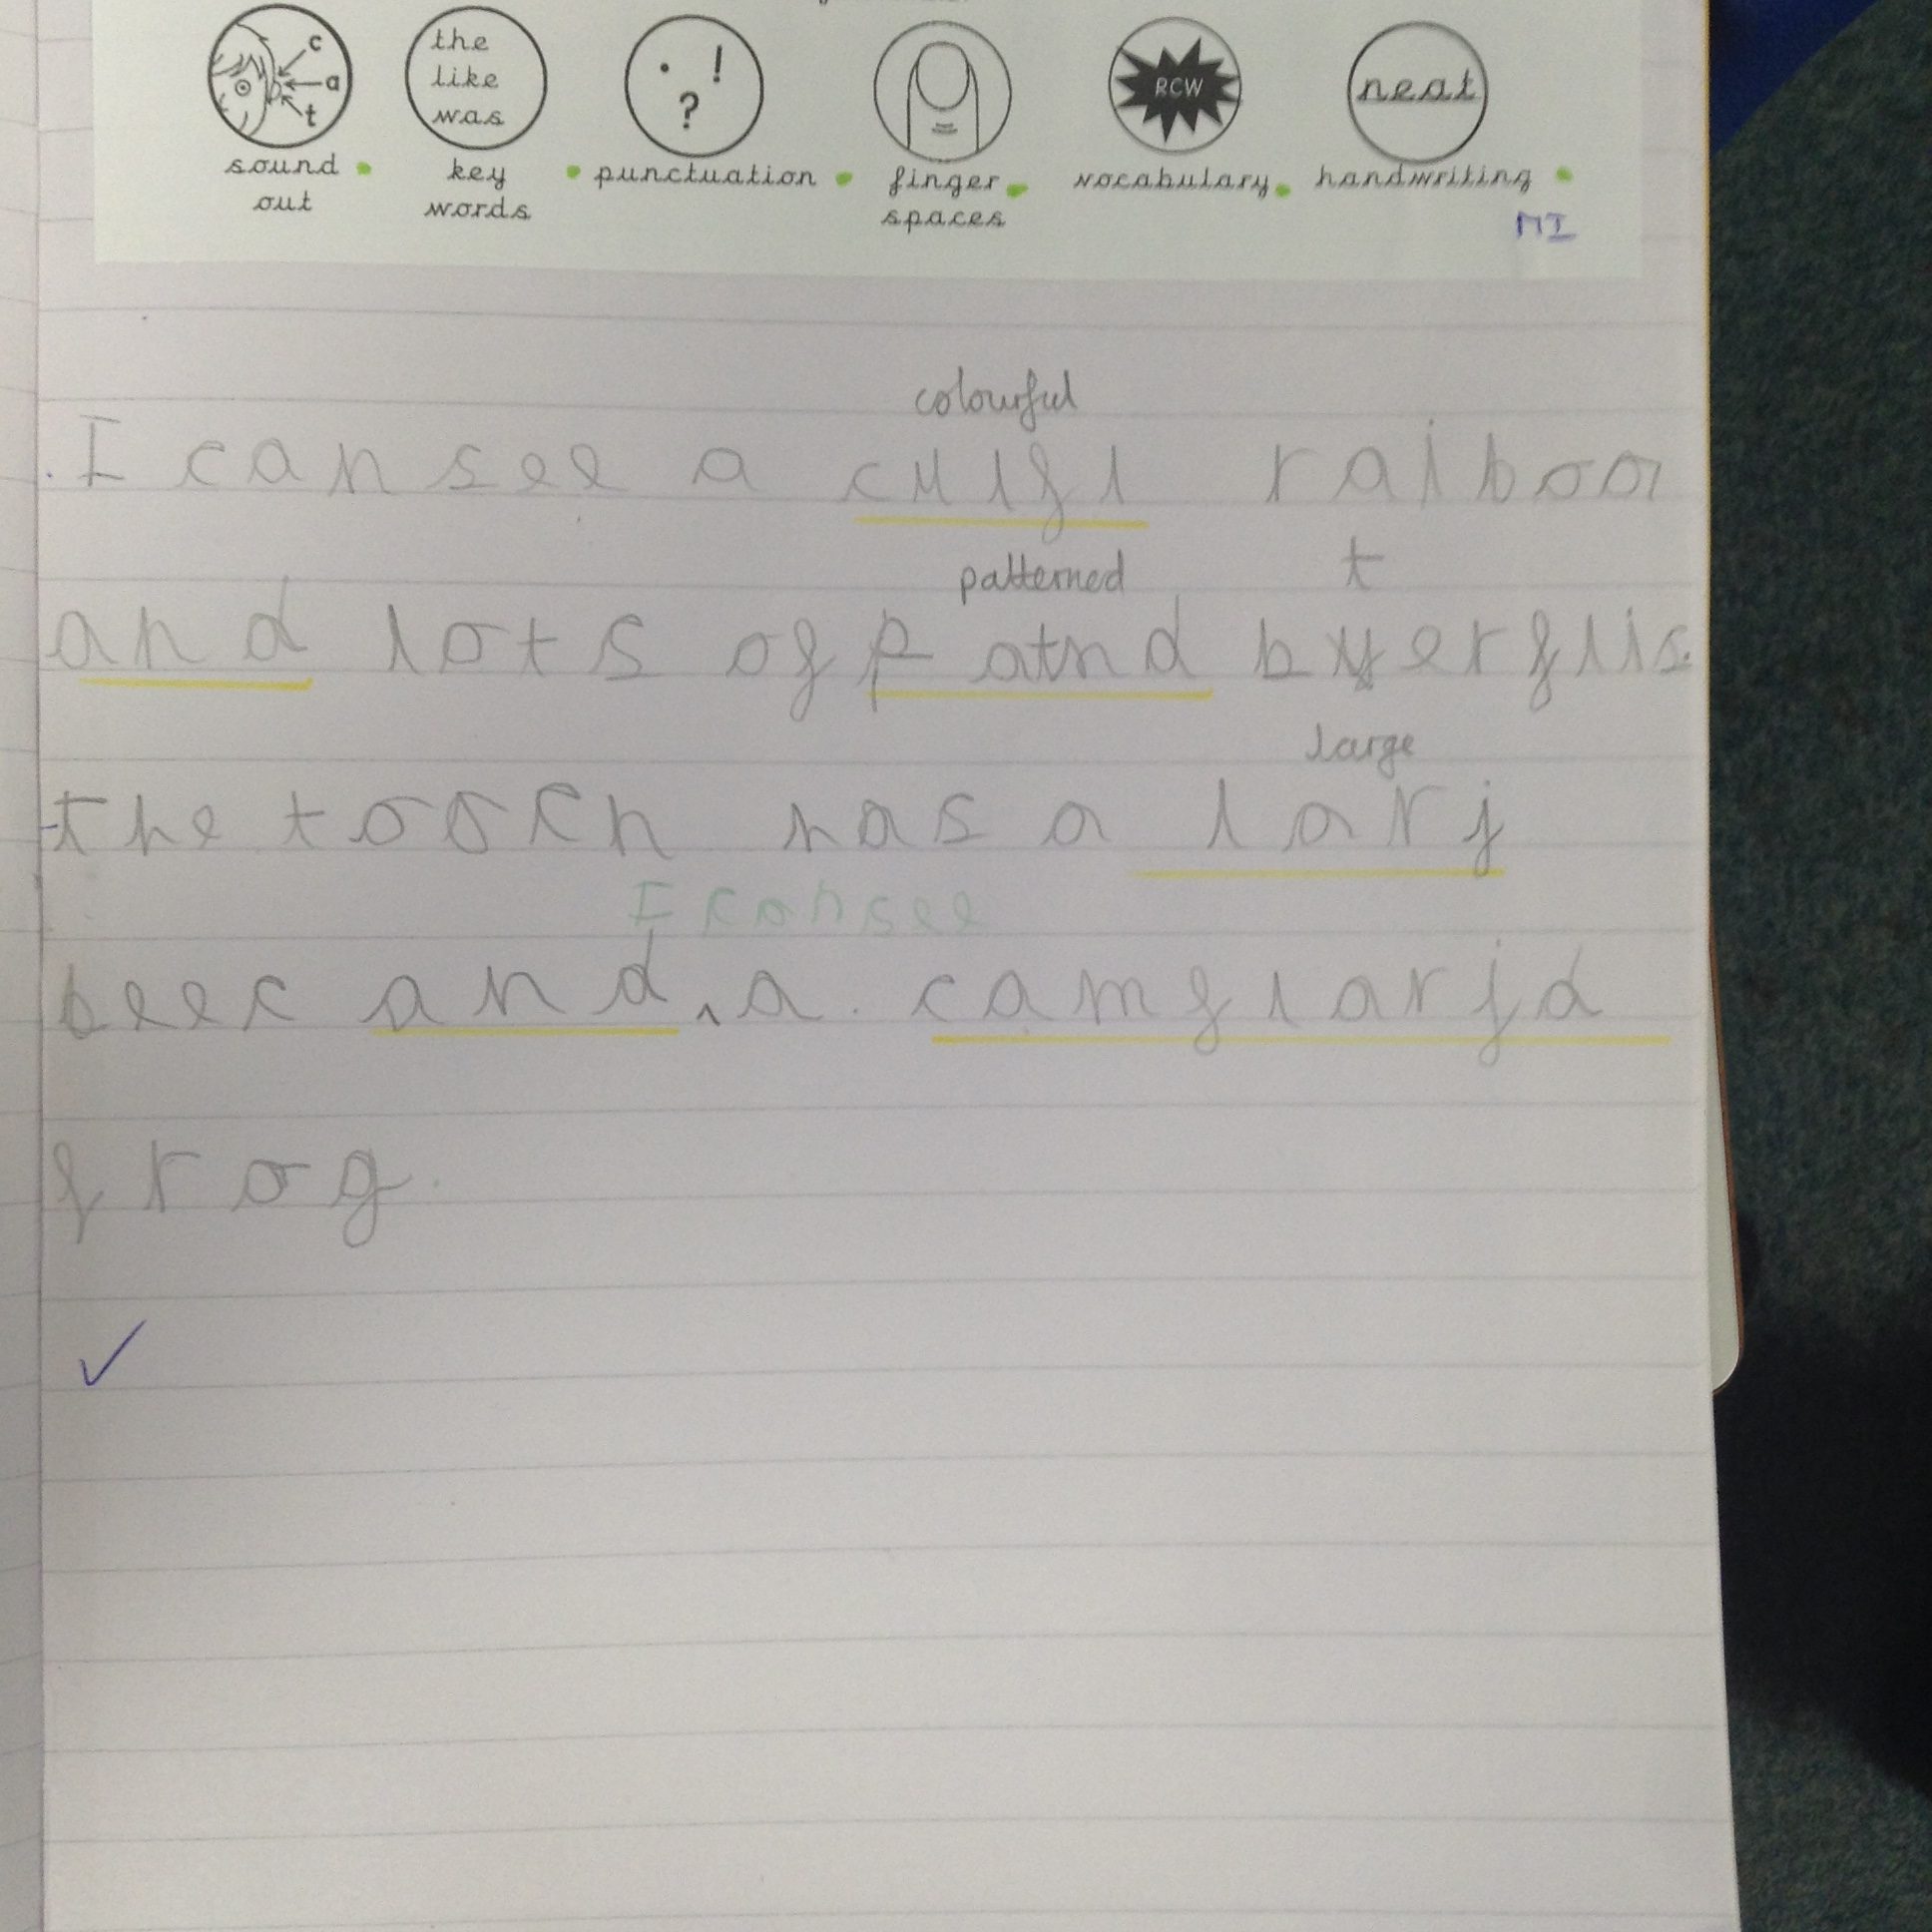 c
a
t
the
like
was
. !
?
RCW
neat
sound out
key words
punctuation
finger spaces
vocabulary
handwriting
MI
colourful
I can see a culfl raiboo
patterned t
and lots of patnd byerfliis.
large
the toocn has a larj
I can see
beec and ^ a camflarjd
frog.